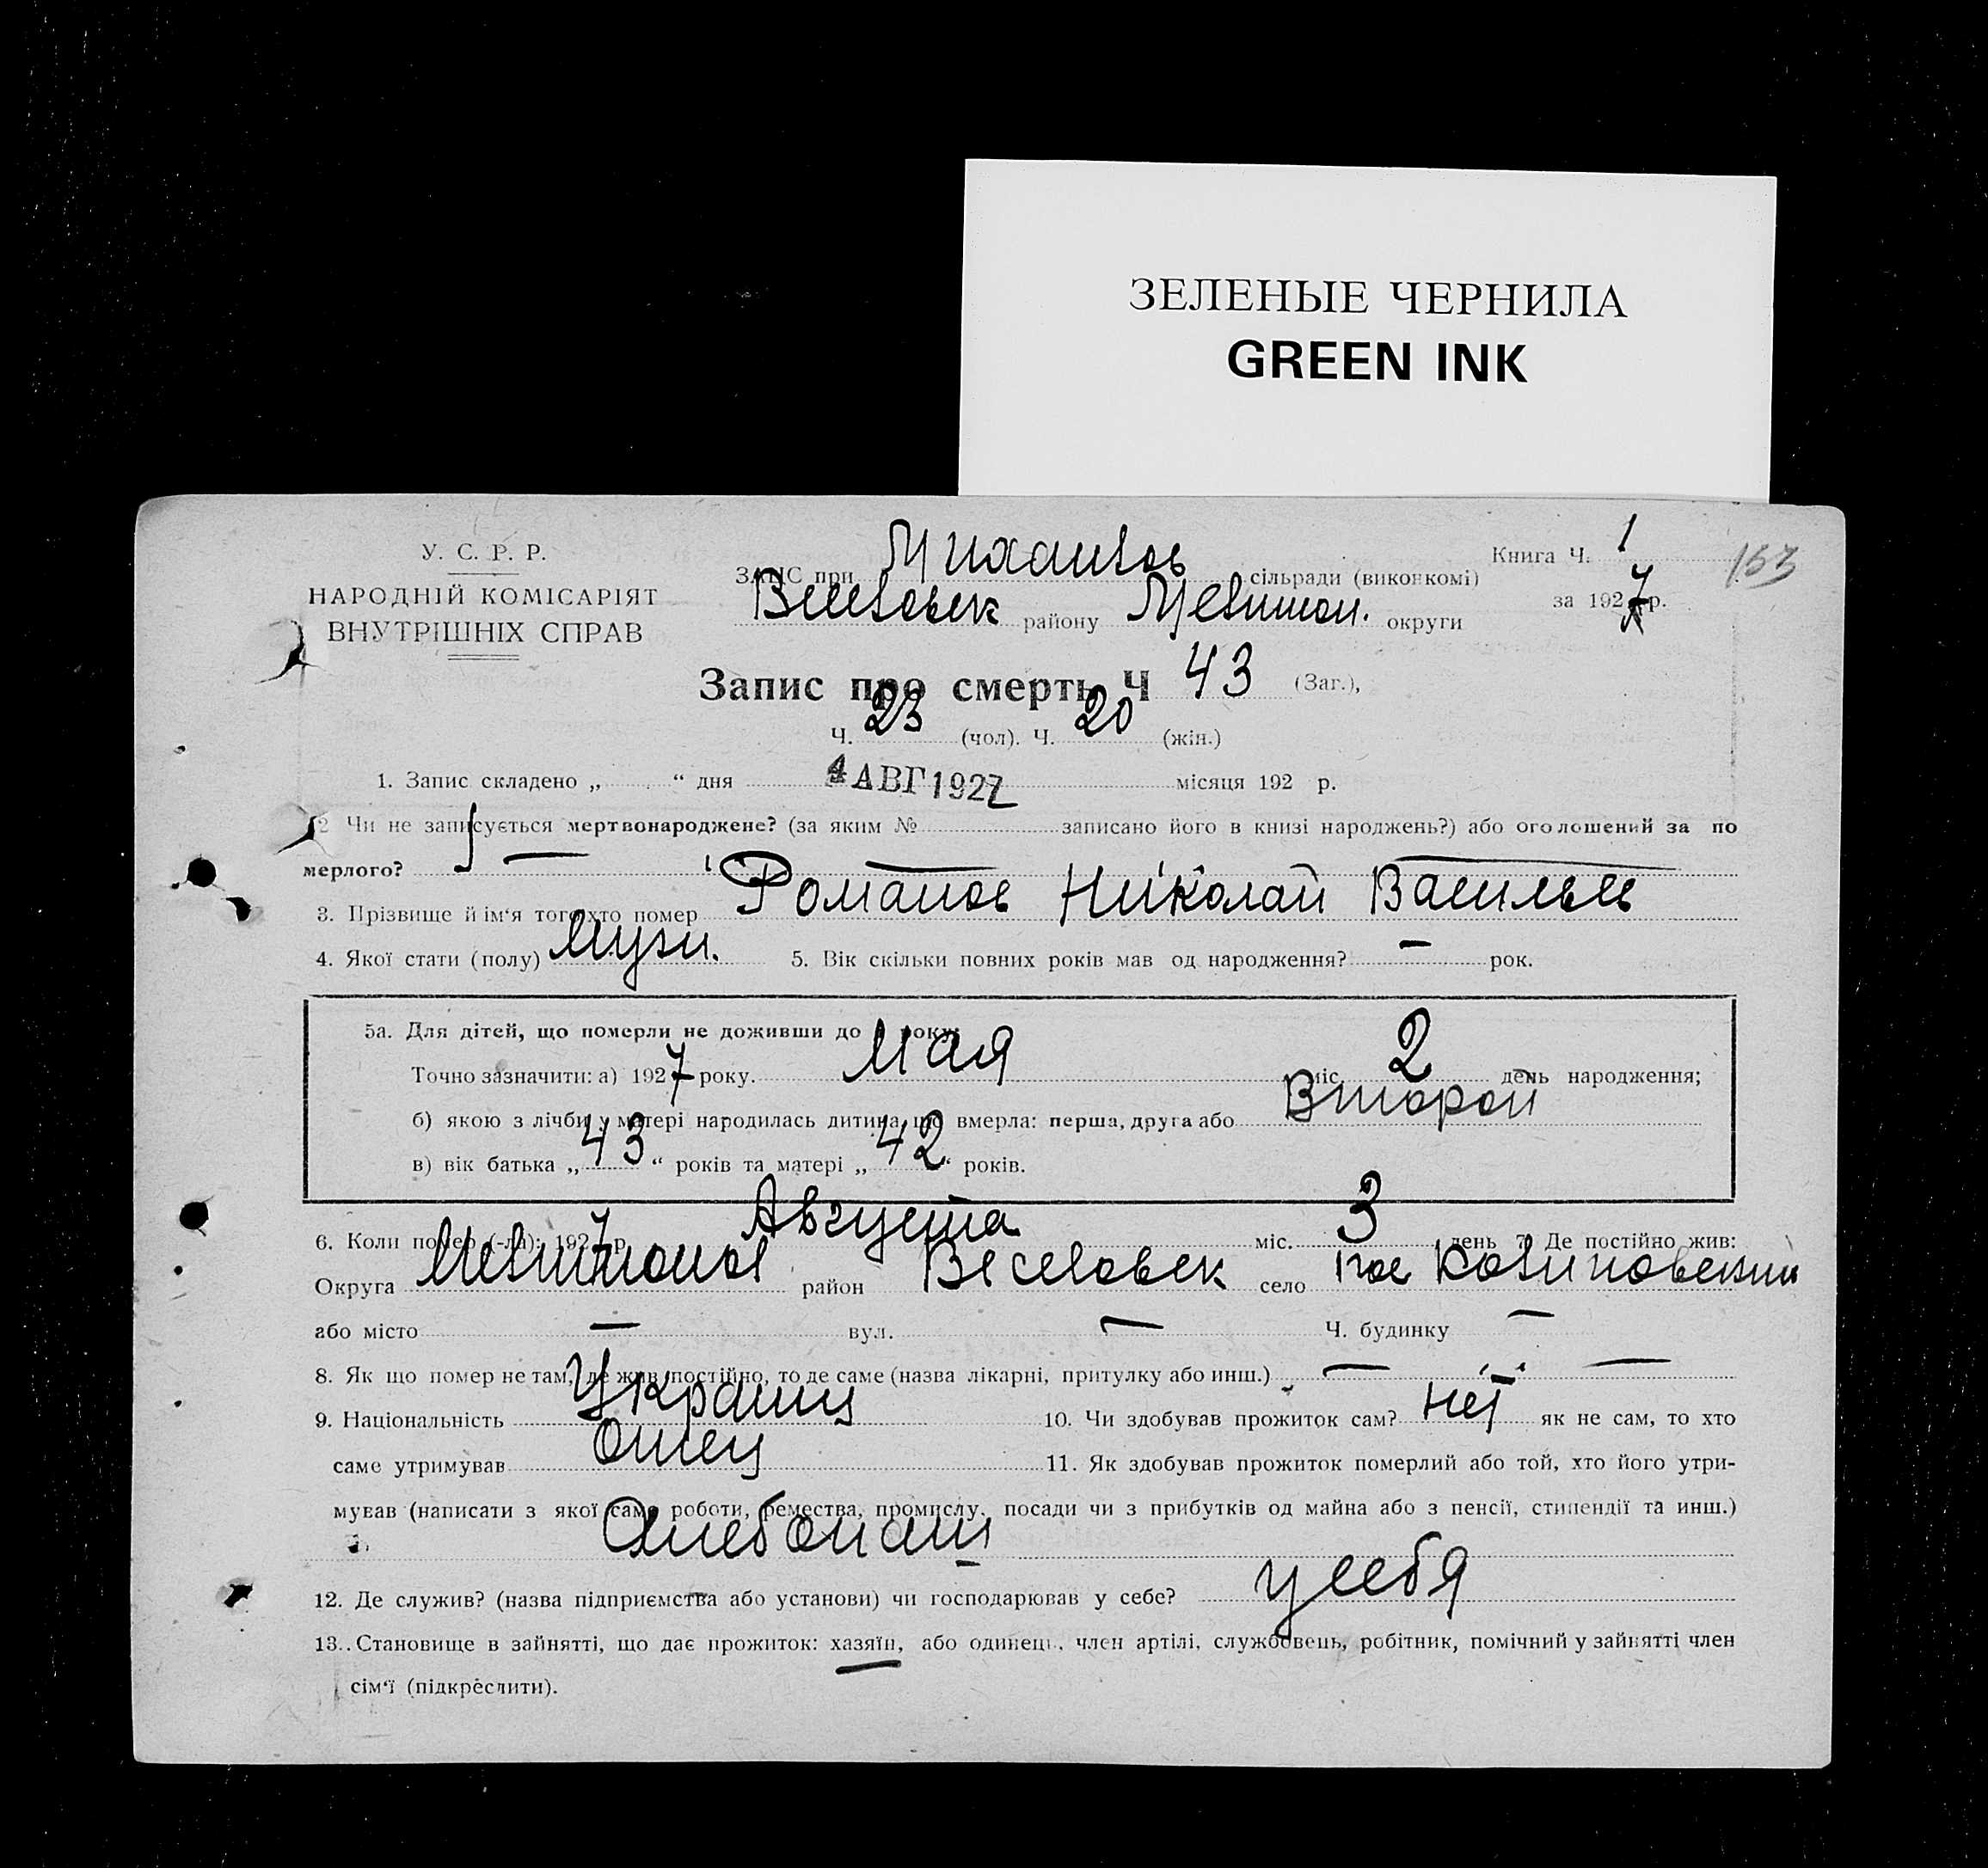 ЗЕЛЕНЫЕ ЧЕРНИЛА
GREEN INK
У. С. Р. Р.
НАРОДНІЙ КОМІСАРІЯТ
ВНУТРІШНІХ СПРАВ
ЗАПИС при Михайлов сільради (виконкомі)
Веселовск району Мелитоп. округи
Книга Ч. 1
за 1927 р.
153
Запис про смерть Ч 43 (Заг.),
Ч. 23 (чол). Ч. 20 (жін.)
1. Запис складено „ “ дня 4 АВГ 1927 місяця 192 р.
2 Чи не записується мертвонароджене? (за яким № записано його в книзі народжень?) або оголошений за по
мерлого? —
3. Прізвище й ім'я того хто помер Романов Николай Васильев
4. Якої стати (полу) Мужч. 5. Вік скільки повних років мав од народження? — рок.
5а. Для дітей, що померли не доживши до року:
Точно зазначити: а) 1927 року. Мая міс. 2 день народження;
б) якою з лічби у матері народилась дитина, що вмерла: перша, друга або Второй
в) вік батька „ 43 “ років та матері „ 42 “ років.
6. Коли помер (-ла): 1927 р. Августа міс. 3 день 7. Де постійно жив:
Округа Мелитопол район Веселовск село пос
або місто — вул. — Ч. будинку —
8. Як що помер не там, де жив постійно, то де саме (назва лікарні, притулку або инш.) — —
9. Національність Украинц 10. Чи здобував прожиток сам? Нет як не сам, то хто
саме утримував Отец 11. Як здобував прожиток померлий або той, хто його утри-
мував (написати з якої саме роботи, ремества, промислу, посади чи з прибутків од майна або з пенсії, стипендії та инш.)
Хлебопаш
12. Де служив? (назва підприємства або установи) чи господарював у себе? у себя
13. Становище в зайнятті, що дає прожиток: хазяїн, або одинець, член артілі, службовець, робітник, помічний у зайнятті член
сім'ї (підкреслити).